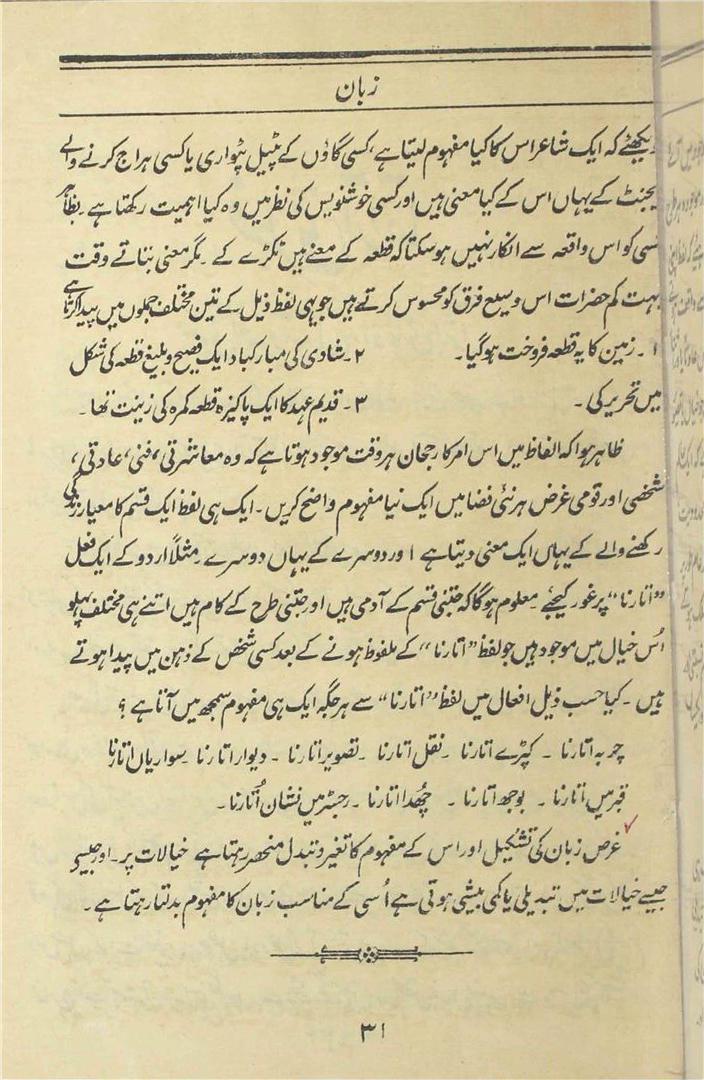 زبان
دیکھئے کہ ایک شاعر اس کا کیا مفہوم لیتا ہے، کسی گاؤں کے پٹیل پٹواری یا کسی ہراج کرنے والے
یجنٹ کے یہاں اس کے کیا معنی ہیں اور کسی خوشنویس کی نظر میں وہ کیا اہمیت رکھتا ہے۔ بظاہر
کسی کو اس واقعہ سے انکار نہیں ہوسکتا کہ قطعہ کے معنے ہیں ٹکڑے کے۔ مگر معنی بتاتے وقت
بہت کم حضرات اس وسیع فرق کو محسوس کرتے ہیں جو یہی لفظ ذیل کے تین مختلف جملوں میں پیدا کرتا ہے
۱۔ زمین کا یہ قطعہ فروخت ہوگیا۔ ۲۔ شادی کی مبارکباد ایک فصیح و بلیغ قطعہ کی شکل
میں تحریر کی۔ ۳۔ قدیم عہد کا ایک پاکیزہ قطعہ کمرہ کی زینت تھا۔
ظاہر ہوا کہ الفاظ میں اس امر کا رجحان ہر وقت موجود ہوتا ہے کہ وہ معاشرتی، فنی، عادتی،
شخصی اور قومی غرض ہر نئی فضا میں ایک نیا مفہوم واضح کریں۔ ایک ہی لفظ ایک قسم کا معیار زندگی
رکھنے والے کے یہاں ایک معنی دیتا ہے اور دوسرے کے یہاں دوسرے۔ مثلاً اردو کے ایک فعل
”اتارنا“ پر غور کیجئے۔ معلوم ہوگا کہ جتنی قسم کے آدمی ہیں اور جتنی طرح کے کام ہیں اتنے ہی مختلف پہلو
اُس خیال میں موجود ہیں جو لفظ ”اتارنا“ کے ملفوظ ہونے کے بعد کسی شخص کے ذہن میں پیدا ہوتے
ہیں۔ کیا حسب ذیل افعال میں لفظ ”اتارنا“ سے ہر جگہ ایک ہی مفہوم سمجھ میں آتا ہے؟
چربہ اتارنا ۔ کپڑے اتارنا ۔ نقل اتارنا ۔ تصویر اتارنا ۔ دیوار اتارنا ۔ سواریاں اتارنا
قبر میں اتارنا ۔ بوجھ اتارنا ۔ چُھدا اتارنا ۔ رجسٹر میں نشان اُتارنا۔
غرض زبان کی تشکیل اور اس کے مفہوم کا تغیر و تبدل منحصر رہتا ہے خیالات پر۔ اور جیسے
جیسے خیالات میں تبدیلی یا کمی بیشی ہوتی ہے اُسی کے مناسب زبان کا مفہوم بدلتا رہتا ہے۔
۳۱